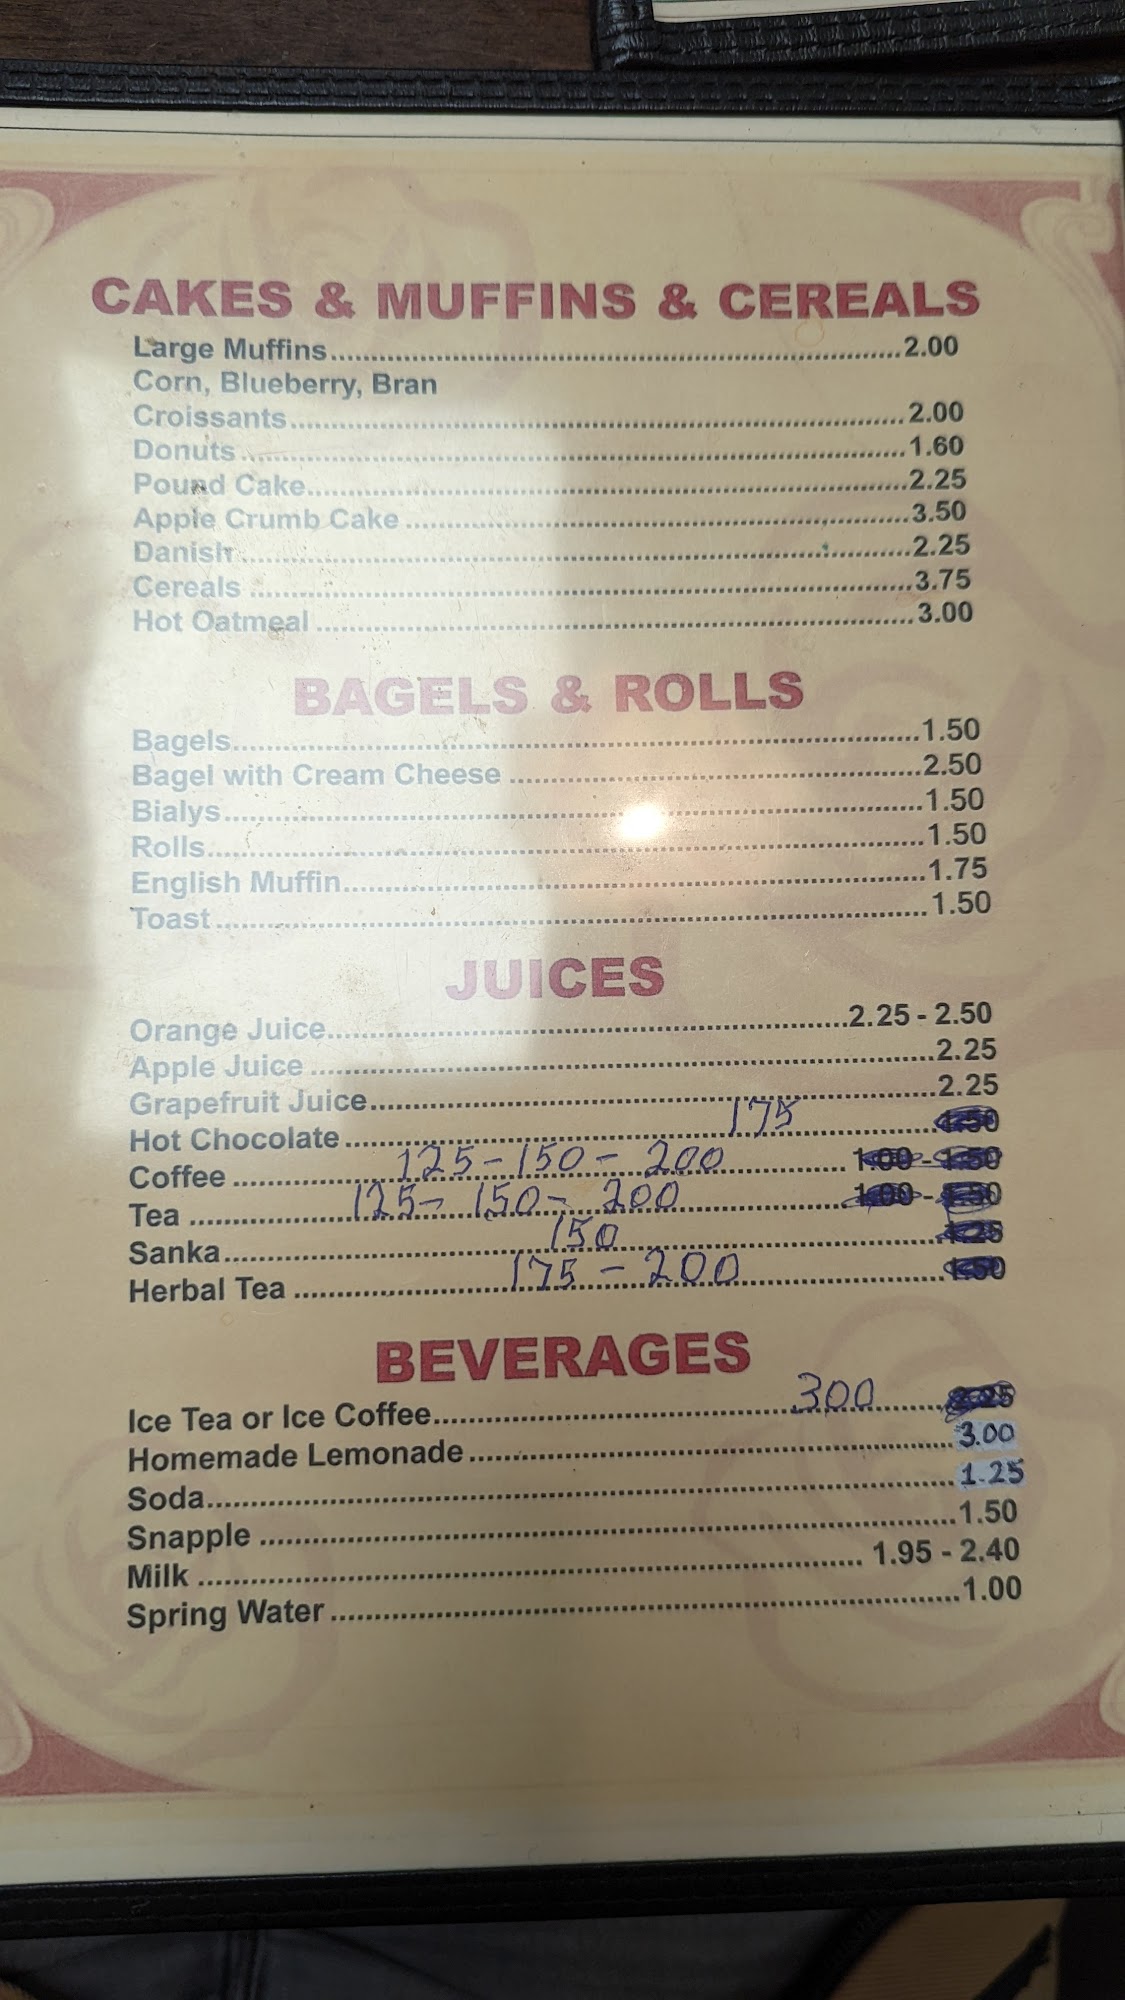 CAKES & MUFFINS & CEREALS
Large Muffins.....2.00
Corn, Blueberry, Bran
Croissants.....2.00
Donuts.....1.60
Pound Cake.....2.25
Apple Crumb Cake.....3.50
Danish.....2.25
Cereals.....3.75
Hot Oatmeal.....3.00
BAGELS & ROLLS
Bagels.....1.50
Bagel with Cream Cheese.....2.50
Bialys.....1.50
Rolls.....1.50
English Muffin.....1.75
Toast.....1.50
JUICES
Orange Juice.....2.25 - 2.50
Apple Juice.....2.25
Grapefruit Juice.....2.25
Hot Chocolate.....175 1.50
Coffee.....125-150-200 1.00 - 1.50
Tea.....125-150-200 1.00 -
Sanka.....150 1.25
Herbal Tea.....175-200 1.50
BEVERAGES
Ice Tea or Ice Coffee.....300
Homemade Lemonade.....3.00
Soda.....1.25
Snapple.....1.50
Milk.....1.95 - 2.40
Spring Water.....1.00